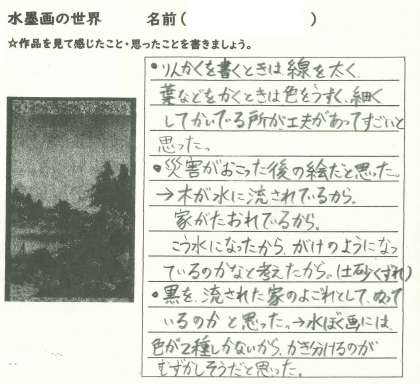 水墨画の世界　名前(　　　)
☆作品を見て感じたこと・思ったことを書きましょう。
・りんかくを書くときは線を太く、
葉などをかくときは色をうすく、細く
してかいている所が工夫があってすごいと
思った。
・災害がおこった後の絵だと思った。
→木が水に流されているから。
家がたおれているから。
こう水になったから、がけのようになっ
ているのかなと考えたから。(土砂くずれ)
・黒を、流された家のよごれとして、ぬって
いるのかと思った。→水ぼく画には、
色が2種しかないから、かき分けるのが
むずかしそうだと思った。